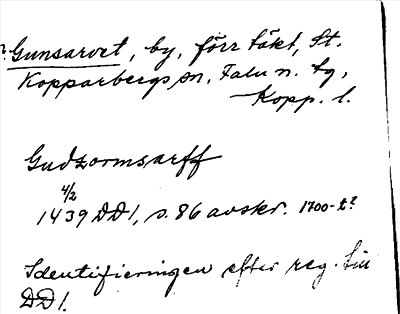 Gunsarvet, by, förr täkt, St.
Kopparbergs sn, Falu n. tg,
Kopp. l.
Gudzormsarff
4/2
1439 DD 1, s. 86 avskr. 1700-t?
Identifieringen efter reg. till
DD 1.